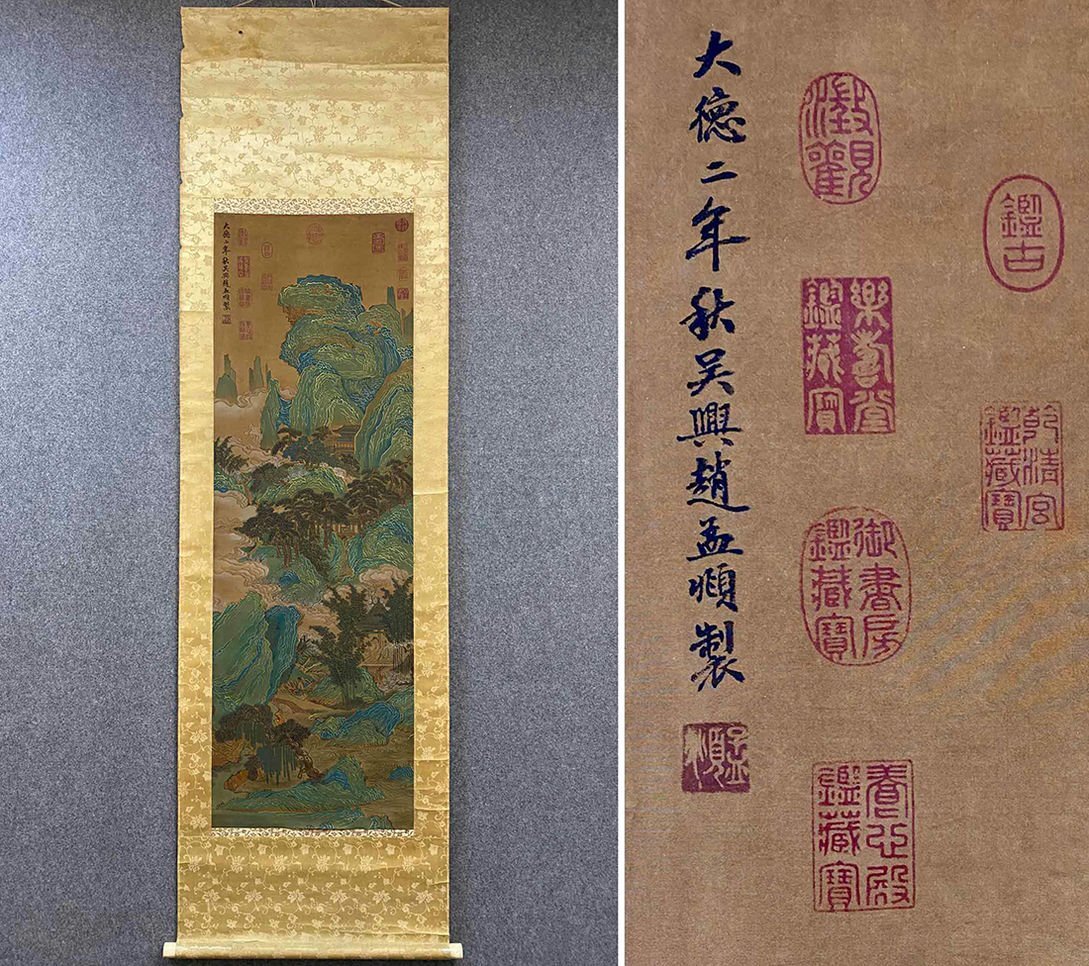 大德二年秋吴興趙孟頫製
澂觀
鑑古
樂壽堂
鑑藏寶
乾清宮
鑑藏寶
御書房
鑑藏寶
養心殿
鑑藏寶